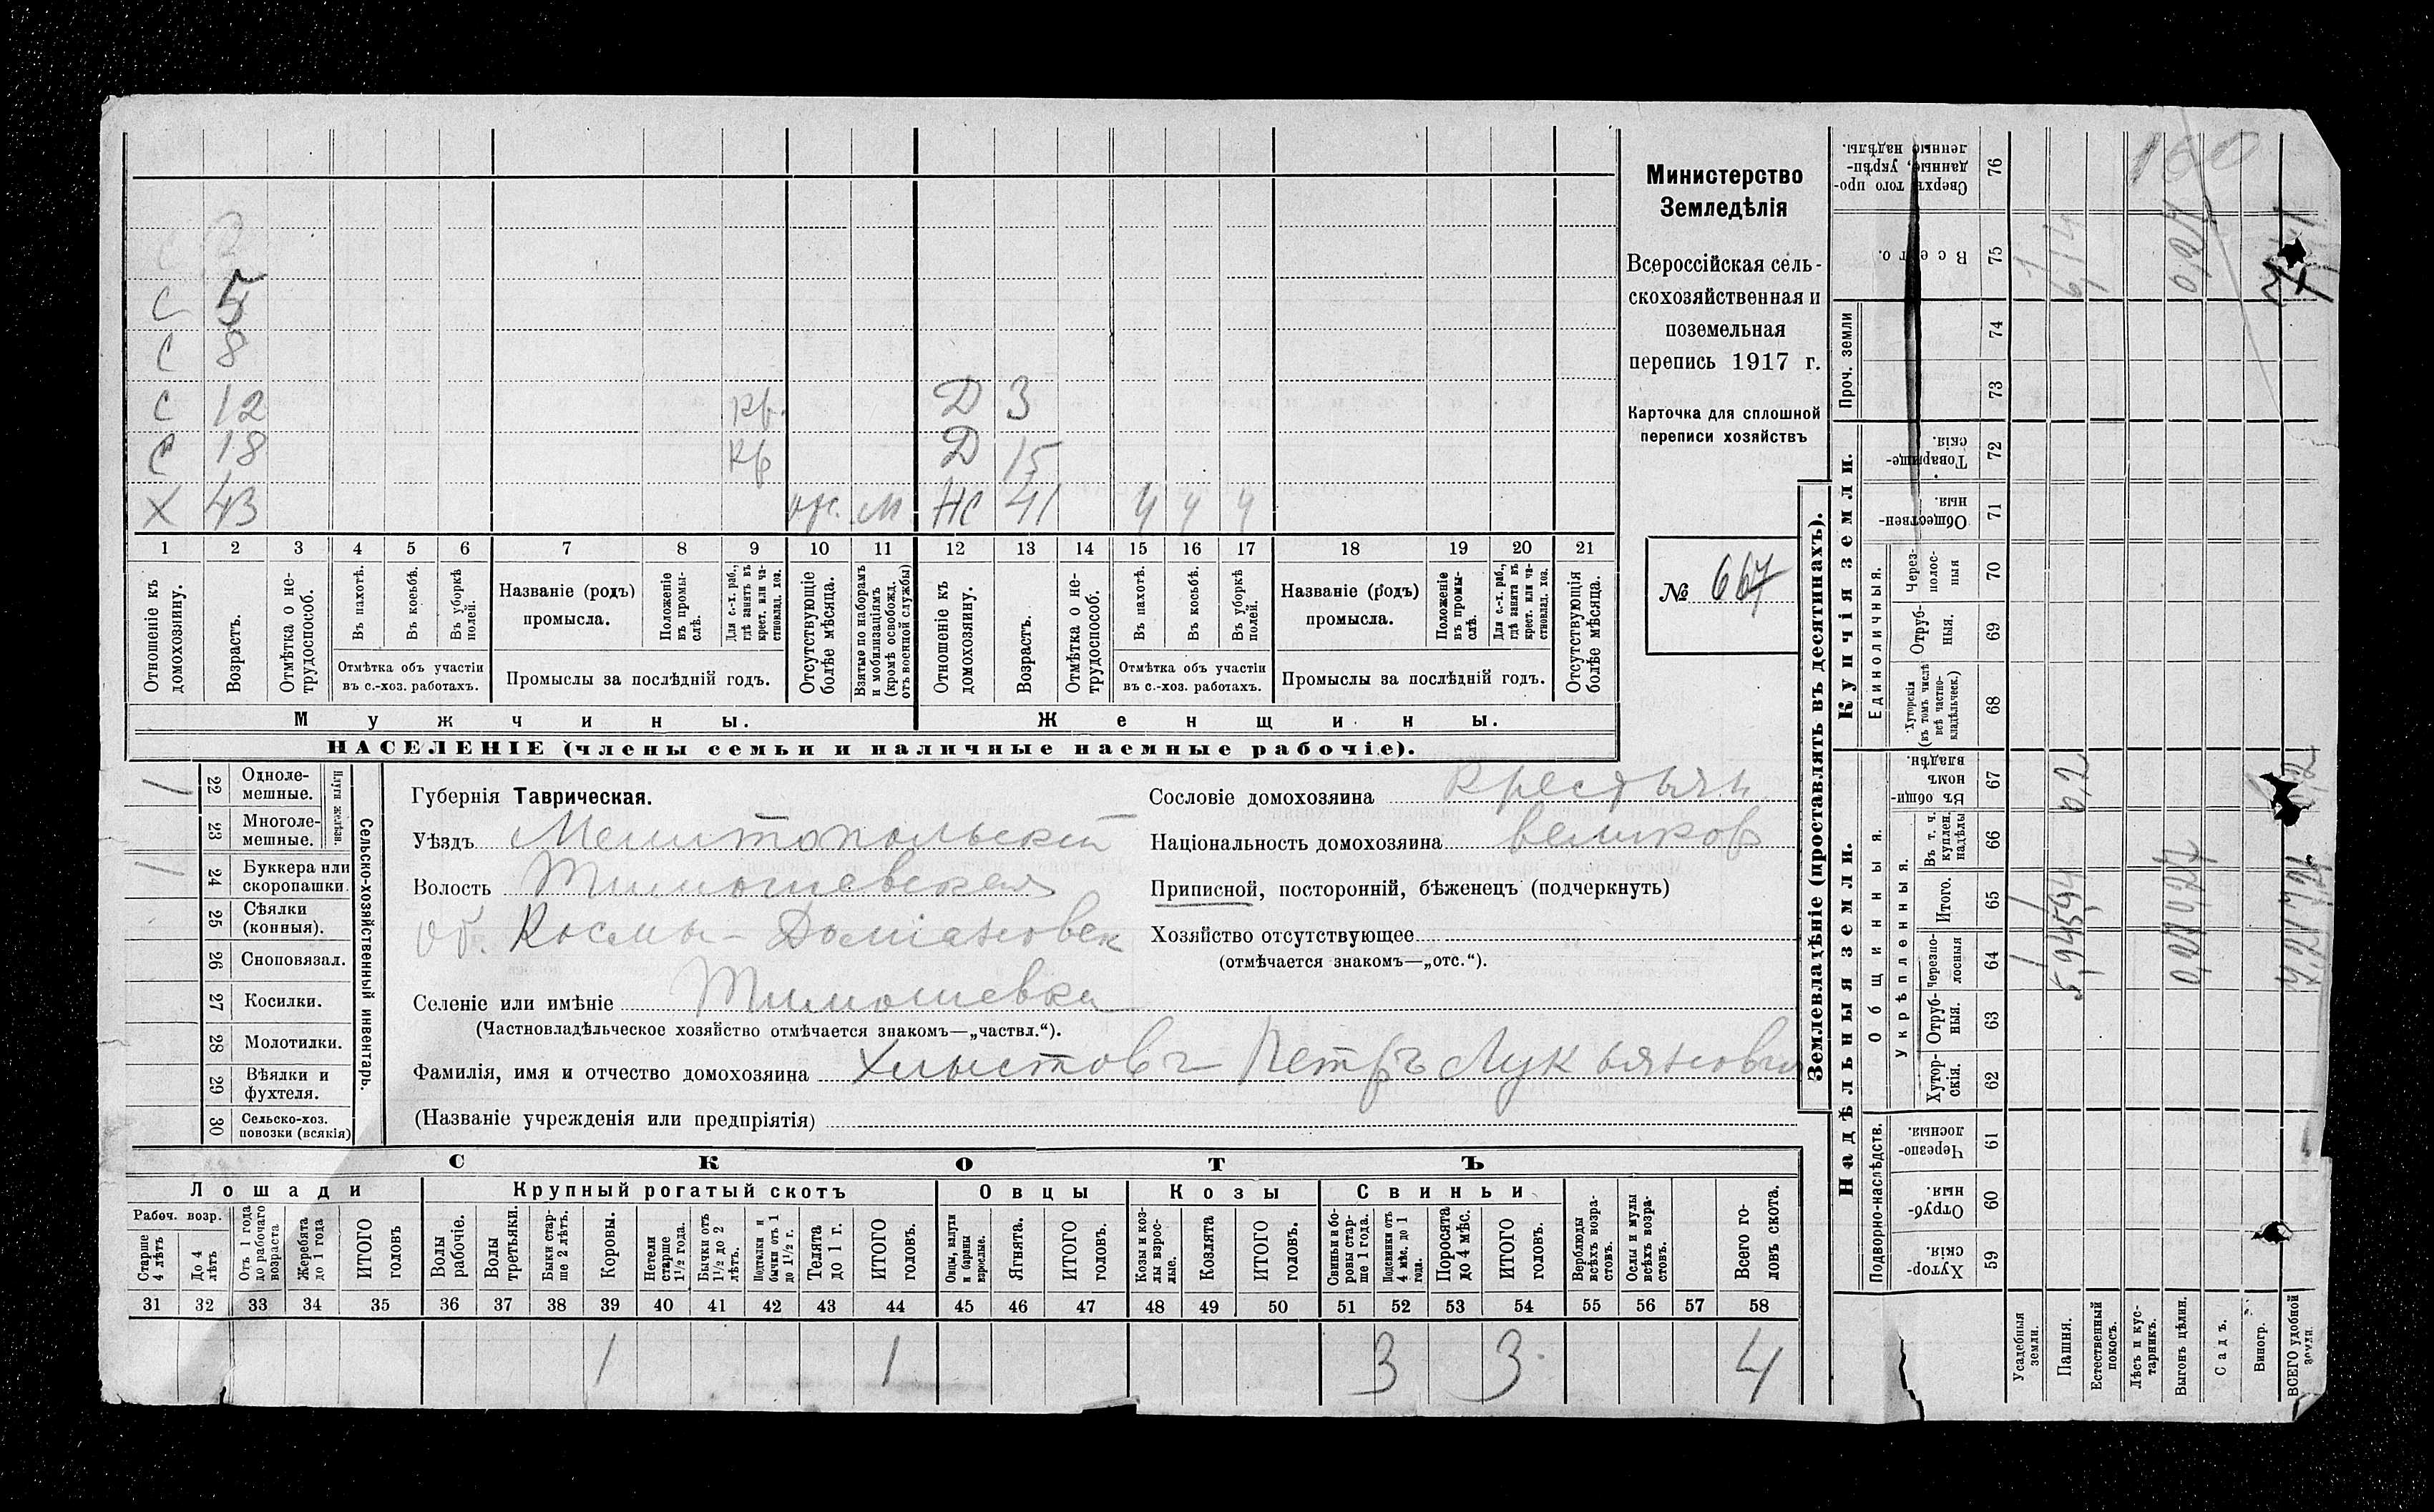 С 5
С 8
С 12 Кр. Д 3
С 18 Кр Д 15
Х 43 отс. М НС 41 ч ч ч
1 2 3 4 5 6 7 8 9 10 11 12 13 14 15 16 17 18 19 20 21
Отношеніе къ домохозяину.
Возрастъ.
Отмѣтка о нетрудоспособ.
Въ пахотѣ.
Въ косьбѣ.
Въ уборкѣ полей.
Отмѣтка объ участіи
въ с.-хоз. работахъ.
Названіе (родъ)
промысла.
Положеніе въ промыслѣ.
Для с.-х. раб., гдѣ занятъ въ крест. или частновлад. хоз.
Промыслы за послѣдній годъ.
Отсутствующіе болѣе мѣсяца.
Взятые по наборамъ и мобилизаціямъ (кромѣ освобожд. отъ военной службы)
Отношеніе къ домохозяину.
Возрастъ.
Отмѣтка о нетрудоспособ.
Въ пахотѣ.
Въ косьбѣ.
Въ уборкѣ полей.
Отмѣтка объ участіи
въ с.-хоз. работахъ.
Названіе (родъ)
промысла.
Положеніе въ промыслѣ.
Для с.-х. раб., гдѣ занята въ крест. или частновлад. хоз.
Промыслы за послѣдній годъ.
Отсутствующія болѣе мѣсяца.
Мужчины. Женщины.
НАСЕЛЕНІЕ (члены семьи и наличные наемные рабочіе).
Министерство
Земледѣлія
Всероссійская сель-
скохозяйственная и
поземельная
перепись 1917 г.
Карточка для сплошной
переписи хозяйствъ
№ 667
Сельско-хозяйственный инвентарь.
Плуги желѣзн.
1 22 Одноле-
мешные.
23 Многоле-
мешные.
1 24 Буккера или
скоропашки.
25 Сѣялки
(конныя).
26 Сноповязал.
27 Косилки.
28 Молотилки.
29 Вѣялки и
фухтеля.
30 Сельско-хоз.
повозки (всякія)
Губернія Таврическая.
Уѣздъ Мелитопольскій
Волость Тимошевская
об. Космы-Доміановск
Селеніе или имѣніе Тимошевка
(Частновладѣльческое хозяйство отмѣчается знакомъ—„частвл.“).
Фамилія, имя и отчество домохозяина Хлыстовъ Петръ Лукьяновъ
(Названіе учрежденія или предпріятія)
Сословіе домохозяина крестьян
Національность домохозяина великор
Приписной, посторонній, бѣженецъ (подчеркнуть)
Хозяйство отсутствующее
(отмѣчается знакомъ—„отс.“).
СКОТЪ
Лошади Крупный рогатый скотъ Овцы Козы Свиньи
Рабоч. возр.
Старше 4 лѣтъ
До 4 лѣтъ
Отъ 1 года до рабочаго возраста
Жеребята до 1 года
ИТОГО головъ
Волы рабочіе.
Волы третьяки.
Быки старше 2 лѣтъ.
Коровы.
Нетели старше 1½ года.
Бычки отъ 1½ до 2 лѣтъ.
Подтелки и бычки отъ 1 до 1½ г.
Телята до 1 г.
ИТОГО головъ.
Овцы, валухи и бараны взрослые.
Ягнята.
ИТОГО головъ.
Козы и козлы взрослые.
Козлята
ИТОГО головъ.
Свиньи и боровы старше 1 года.
Подсвинки отъ 4 мѣс. до 1 года.
Поросята до 4 мѣс.
ИТОГО головъ.
Верблюды всѣхъ возрастовъ.
Ослы и мулы всѣхъ возрастовъ.
Всего головъ скота.
31 32 33 34 35 36 37 38 39 40 41 42 43 44 45 46 47 48 49 50 51 52 53 54 55 56 57 58
1 1 3 3 4
Землевладѣніе (проставлять въ десятинахъ).
Надѣльныя земли. Купчія земли. Проч. земли
Подворно-наслѣдств.
Общинныя.
Укрѣпленныя.
Единоличныя.
Хуторскія. 59
Отрубныя. 60
Черезполосныя. 61
Хуторскія. 62
Отрубныя. 63
Черезполосныя 64
Итого. 65
Въ т. ч. куплен. надѣлы 66
Въ общинномъ владѣн. 67
Хуторскія (въ томъ числѣ всѣ частновладѣльческ.) 68
Отрубныя. 69
Черезполосныя 70
Общественныя. 71
Товарищескія. 72
73
74
Всего. 75
Сверхъ того проданные, укрѣпленные надѣлы. 76
Усадебныя земли.
Пашня. 0,2 6,14
Естественный покосъ.
Лѣсъ и кустарникъ.
Выгонъ цѣлин. 0,27
Садъ.
Виногр.
ВСЕГО удобной земли.
160